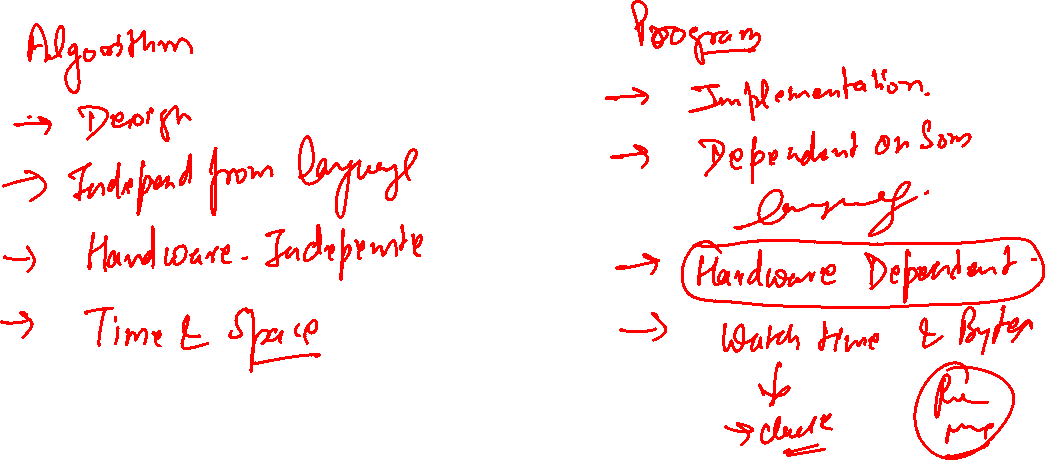 Algorithm
→ Design
→ Independ from language
→ Hardware. Independte
→ Time & Space
Program
→ Implementation.
→ Dependent on Som
language.
→ Hardware Dependent.
→ Watch time & Bytes